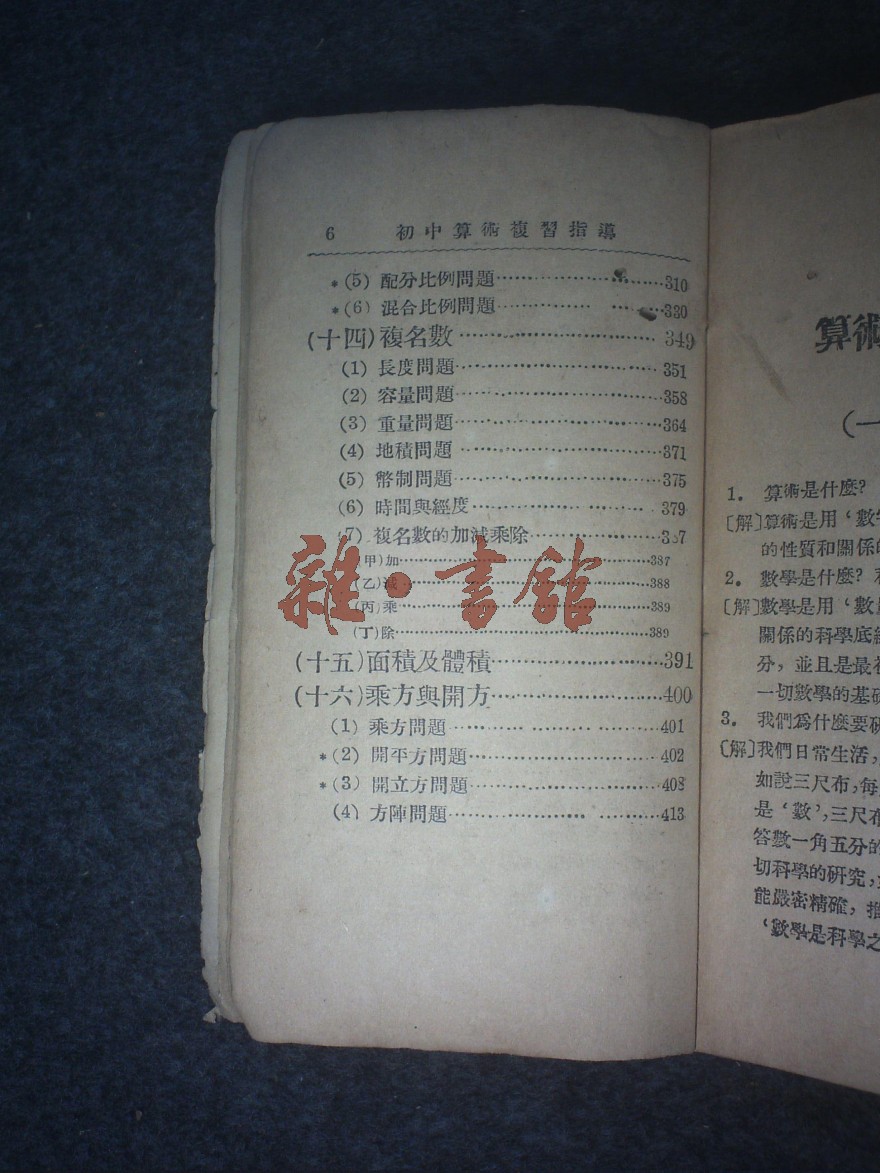 6 初中算術複習指導
*(5) 配分比例問題……310
*(6) 混合比例問題……330
(十四)複名數……349
(1) 長度問題……351
(2) 容量問題……358
(3) 重量問題……364
(4) 地積問題……371
(5) 幣制問題……375
(6) 時間與經度……379
7) 複名數的加減乘除……
甲)加……387
(乙)減……388
(丙)乘……389
(丁)除……389
(十五)面積及體積……391
(十六)乘方與開方……400
(1) 乘方問題……401
*(2) 開平方問題……402
*(3) 開立方問題……408
(4) 方陣問題……413
雜·書館
算術
(一
1. 算術是什麼?
〔解〕算術是用‘數
的性質和關係
2. 數學是什麼?
〔解〕數學是用‘數
關係的科學底
分，並且是最
一切數學的基
3. 我們爲什麼要
〔解〕我們日常生活，
如說三尺布，每
是‘數’，三尺布
答數一角五分的
切科學的研究，
能嚴密精確，
‘數學是科學之